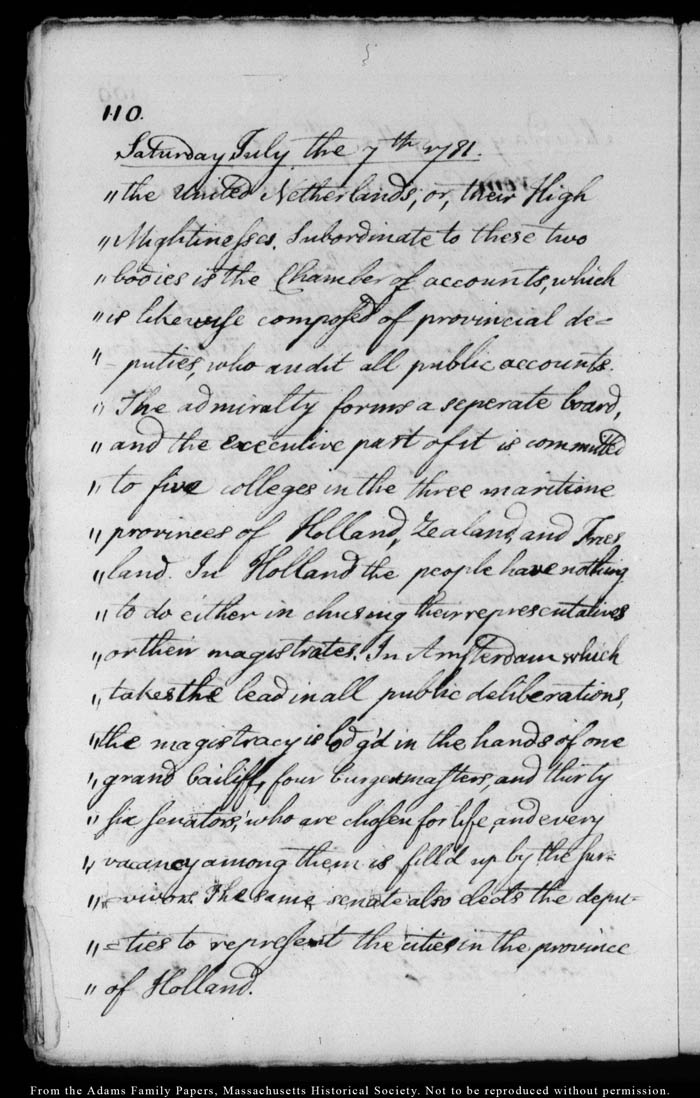 110.
Saturday July the 7th 1781.
"the United Netherlands; or, their High
"Mightinesses. Subordinate to these two
"bodies is the Chamber of accounts, which
"is likewise composed of provincial de=
"=puties, who audit all public accounts.
"The admiralty forms a seperate board,
"and the executive part of it is committed
"to five colleges in the three maritime
"provinces of Holland, Zealand, and Fries
"land. In Holland the people have nothing
"to do either in chusing their representatives
"or their magistrates. In Amsterdam which
"takes the lead in all public deliberations,
"the magistracy is lodg'd in the hands of one
"grand bailiff, four burgermasters, and thirty
"six senators, who are chosen for life, and every
"vacancy among them is fill'd up by the sur=
"=vivors. The same senate also elects the depu=
"=ties to represent the cities in the province
"of Holland.
From the Adams Family Papers, Massachusetts Historical Society. Not to be reproduced without permission.